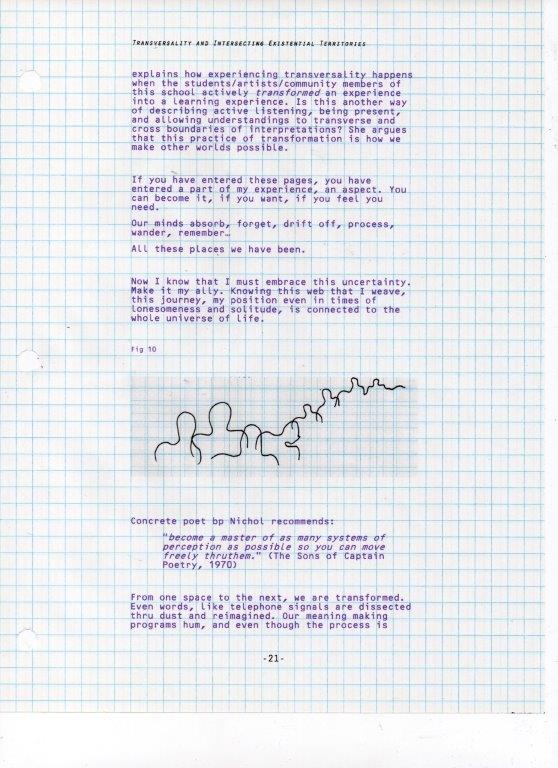 Transversality and Intersecting Existential Territories
explains how experiencing transversality happens
when the students/artists/community members of
this school actively transformed an experience
into a learning experience. Is this another way
of describing active listening, being present,
and allowing understandings to transverse and
cross boundaries of interpretations? She argues
that this practice of transformation is how we
make other worlds possible.
If you have entered these pages, you have
entered a part of my experience, an aspect. You
can become it, if you want, if you feel you
need.
Our minds absorb, forget, drift off, process,
wander, remember…
All these places we have been.
Now I know that I must embrace this uncertainty.
Make it my ally. Knowing this web that I weave,
this journey, my position even in times of
lonesomeness and solitude, is connected to the
whole universe of life.
Fig 10
Concrete poet bp Nichol recommends:
"become a master of as many systems of
perception as possible so you can move
freely thruthem." (The Sons of Captain
Poetry, 1970)
From one space to the next, we are transformed.
Even words, like telephone signals are dissected
thru dust and reimagined. Our meaning making
programs hum, and even though the process is
-21-